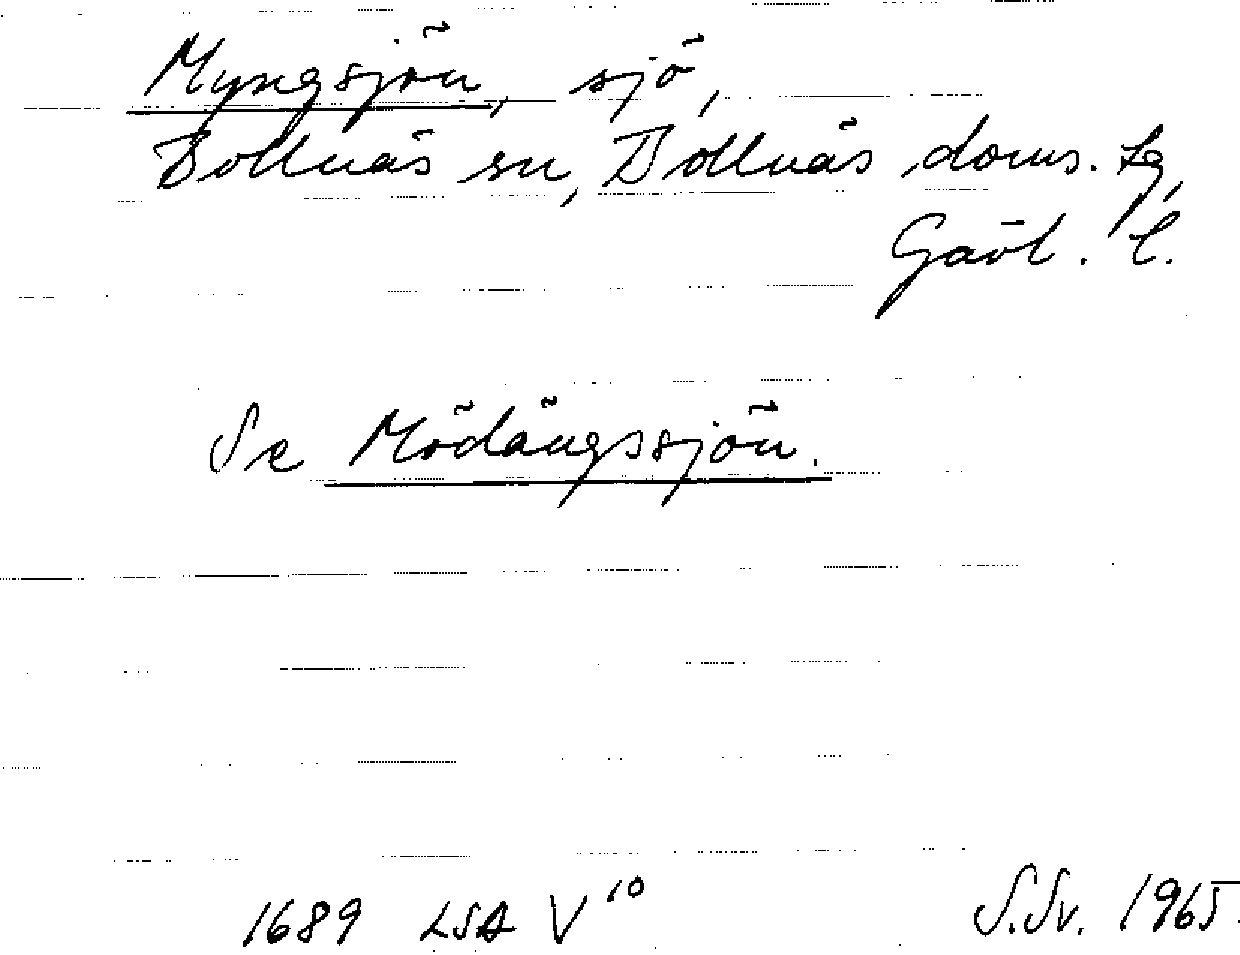 Myngsjön, sjö,
Bollnäs sn, Bollnäs doms. lg,
Gävl. l.
Se Mödängssjön.
1689 LSA V 10
S.Sv. 1965